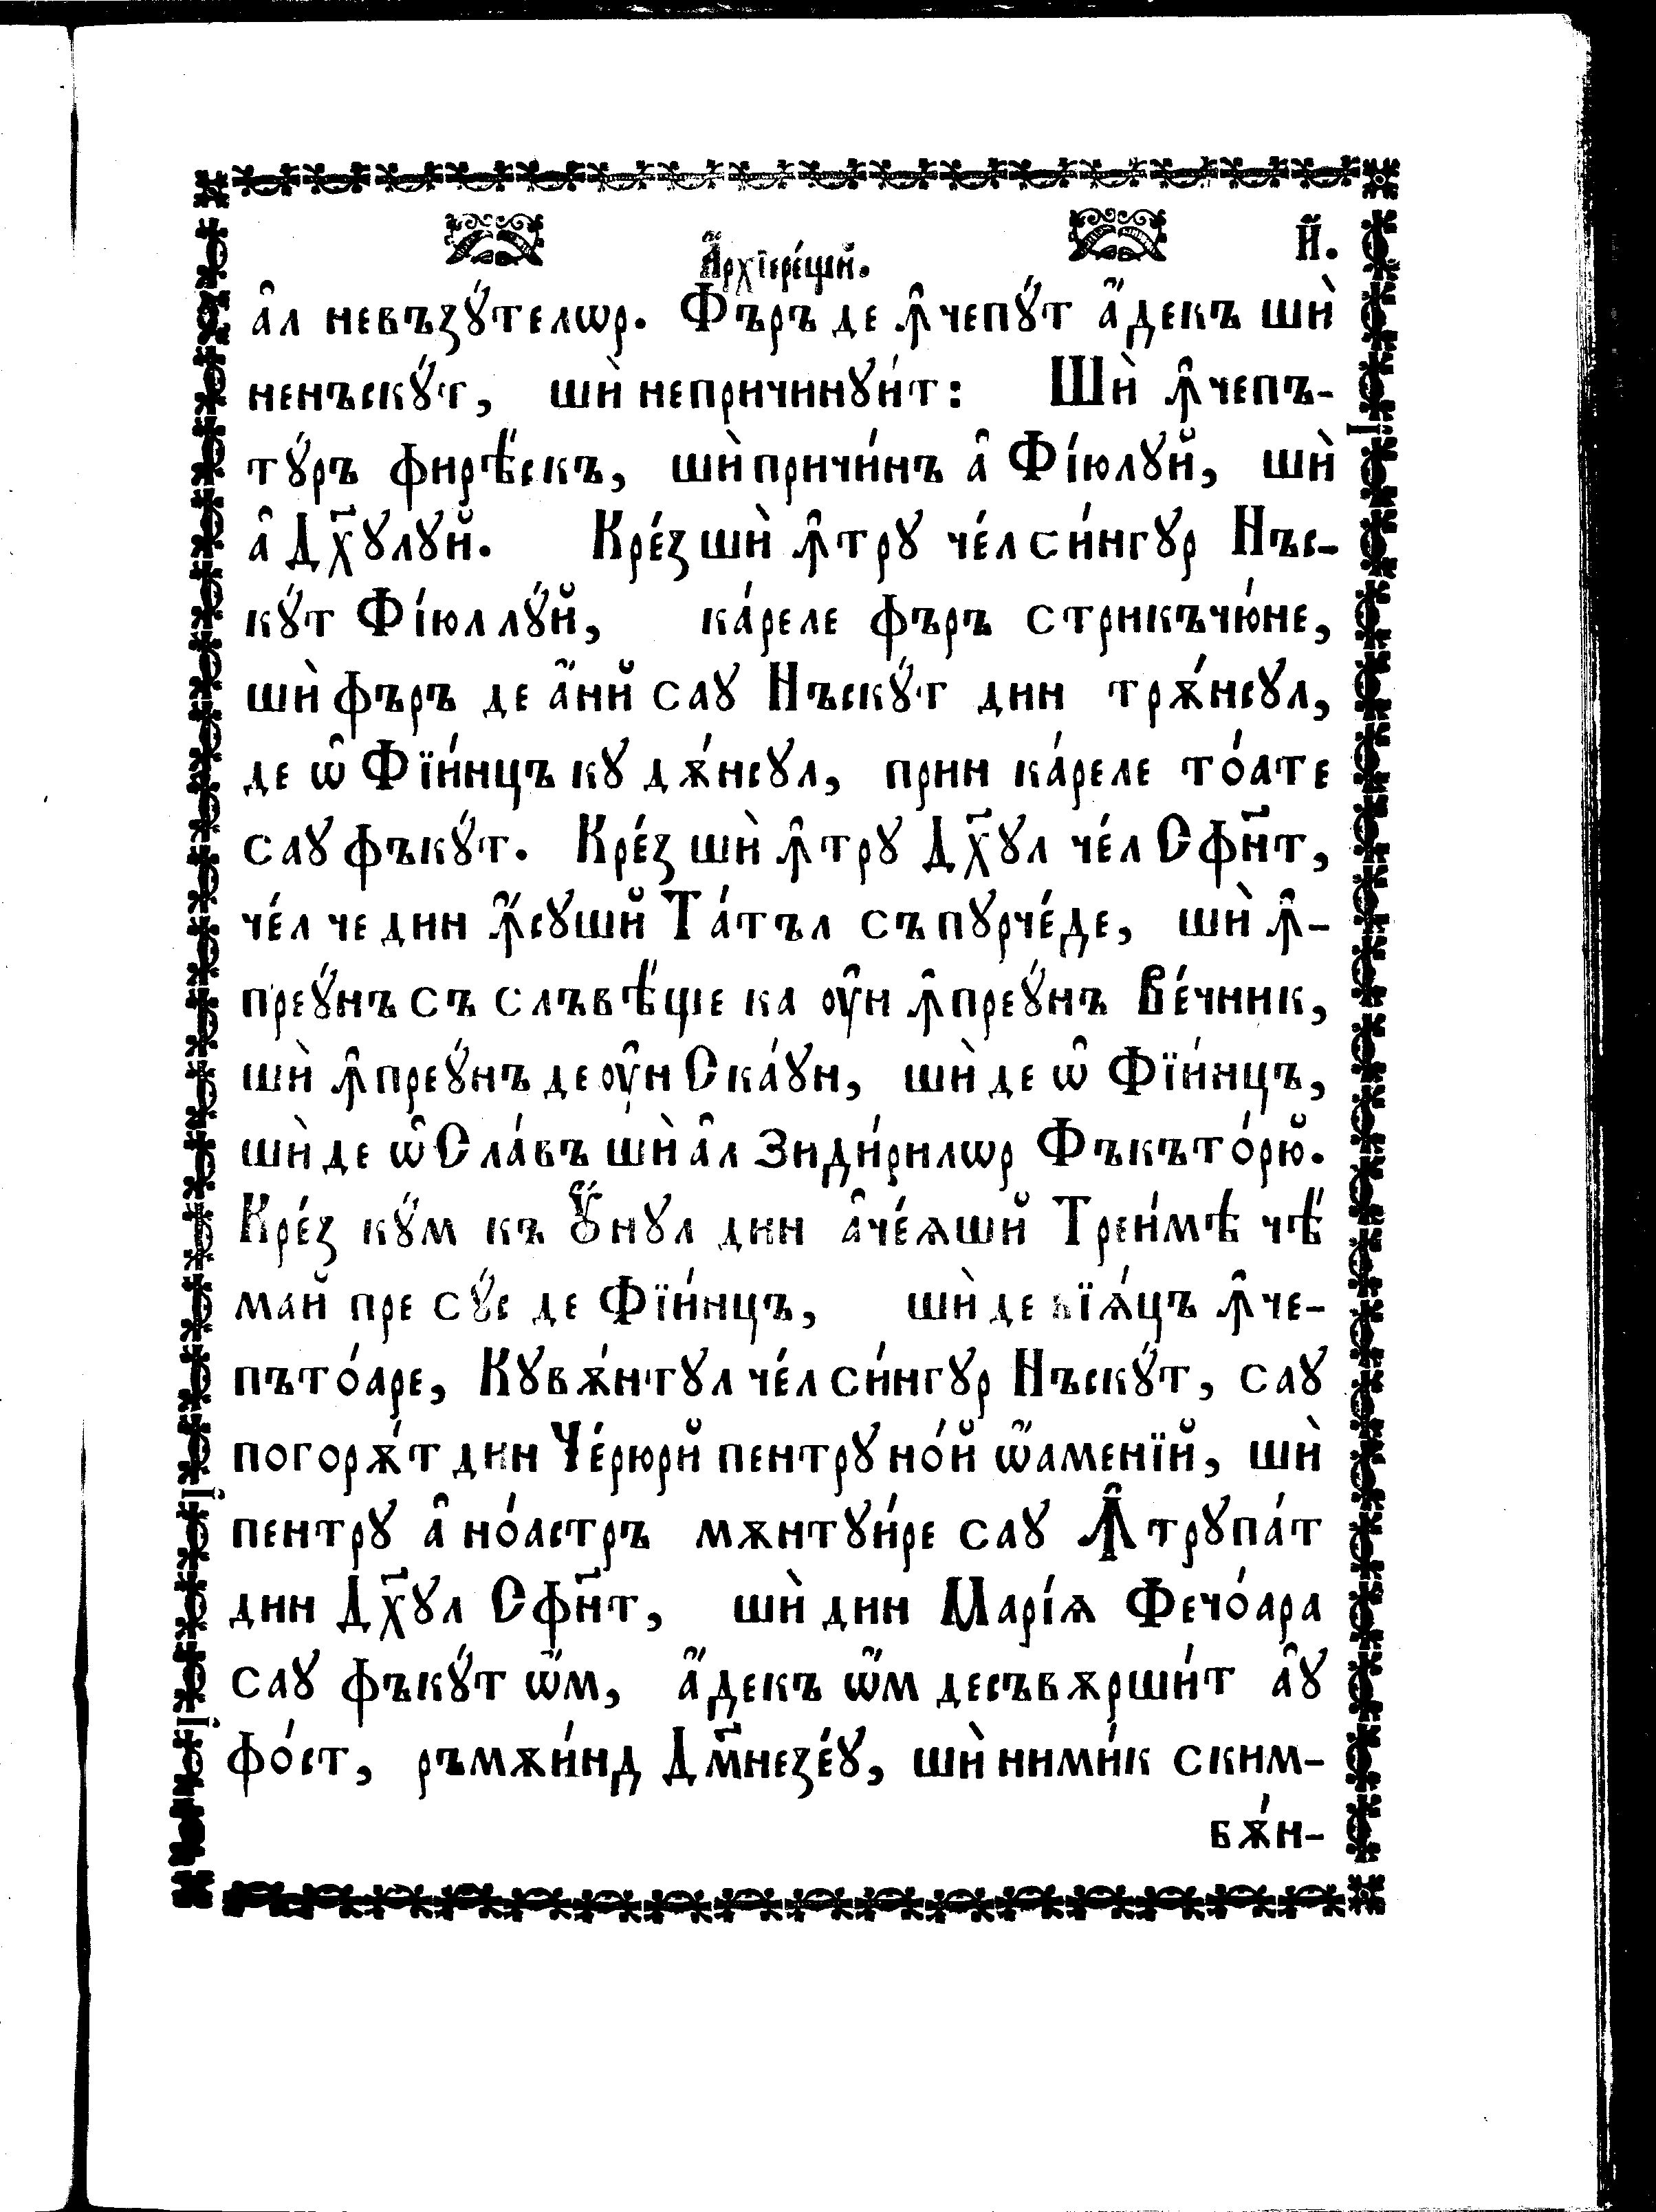 А҆рхїере́щй. и҃.
а҆л невъзꙋ́телѡр. Фъръ де ꙟ҆чепꙋ́т а҆́декъ шѝ
ненъскꙋ́т, шѝ непричинꙋи́т: Шѝ ꙟ҆чепъ-
тꙋ́ръ фирѣ́скъ, шѝ причи́нъ а҆ Фі́юлꙋй, шѝ
а҆ Дх҃ꙋлꙋй. Кре́з шѝ ꙟ҆трꙋ че́л си́нгꙋр Нъс-
кꙋ́т Фі́юл лꙋ́й, ка́реле фъръ стрикъчю́не,
шѝ фъръ де а҆́нй саꙋ Нъскꙋ́т дин трѫ́нсꙋл,
де ѡ҆ Фїи́нцъ кꙋ дѫ́нсꙋл, прин ка́реле то́ате
саꙋ фъкꙋ́т. Кре́з шѝ ꙟ҆трꙋ Дх҃ꙋл че́л Сфн҃т,
че́л че дин ꙟ҆́сꙋшй Та́тъл съ пꙋрче́де, шѝ ꙟ҆-
преꙋ́нъ съ слъвѣ́ще ка ѹ҆н ꙟ҆преꙋ́нъ Ве́чник,
шѝ ꙟ҆преꙋ́нъ де ѹ҆н Ска́ꙋн, шѝ де ѡ҆ Фїи́нцъ,
шѝ де ѡ҆ Сла́въ шѝ а҆л Зиди́рилѡр Фъкъто́рю̆.
Кре́з кꙋ́м къ Ꙋ҆́нꙋл дин а҆че́ѧшй Треи́мѣ чѣ́
май пре сꙋ́с де Фїи́нцъ, шѝ де вїѧ́цъ ꙟ҆че-
пъто́аре, Кꙋвѫ́нтꙋл че́л си́нгꙋр Нъскꙋ́т, саꙋ
погорѫ́т дин Че́рюрй пентрꙋ но́й ѡ҆́аменїй, шѝ
пентрꙋ а҆ но́астръ мѫнтꙋи́ре саꙋ Ꙟ҆трꙋпа́т
дин Дх҃ꙋл Сфн҃т, шѝ дин Марі́ѧ Фечо́ара
саꙋ фъкꙋ́т ѡ҆́м, а҆́декъ ѡ҆́м десъвѫрши́т а҆ꙋ
фо́ст, ръмѫи́нд Дм҃незе́ꙋ, шѝ ними́к ским-
бѫ́н-